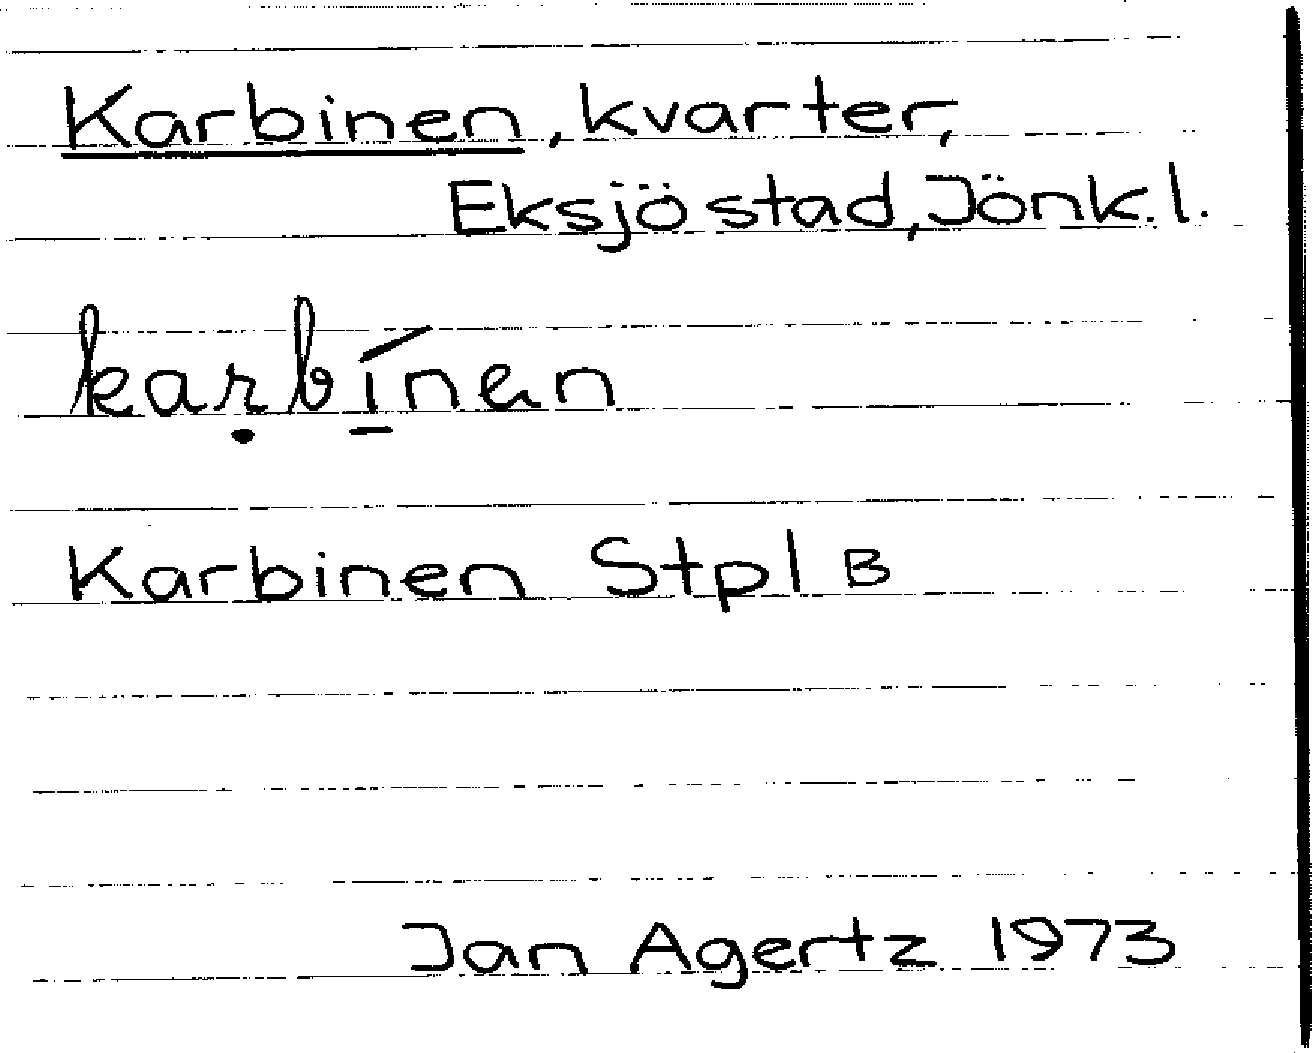 Karbinen, kvarter,
Eksjö stad, Jönk. l.
karbí̱nen
Karbinen Stpl B
Jan Agertz 1973